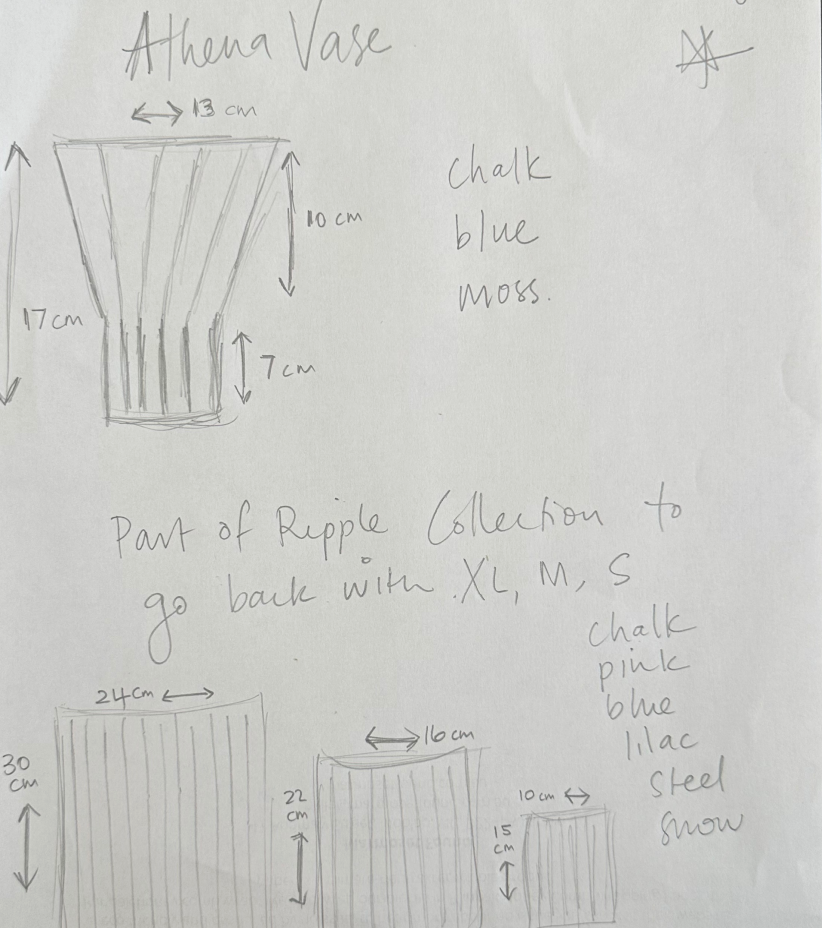 Athena Vase
13 cm
chalk
10 cm
blue
moss.
17 cm
7 cm
Part of Ripple Collection to
go back with XL, M, S
chalk
pink
blue
lilac
steel
snow
24 cm
30
cm
16 cm
22
cm
10 cm
15
cm